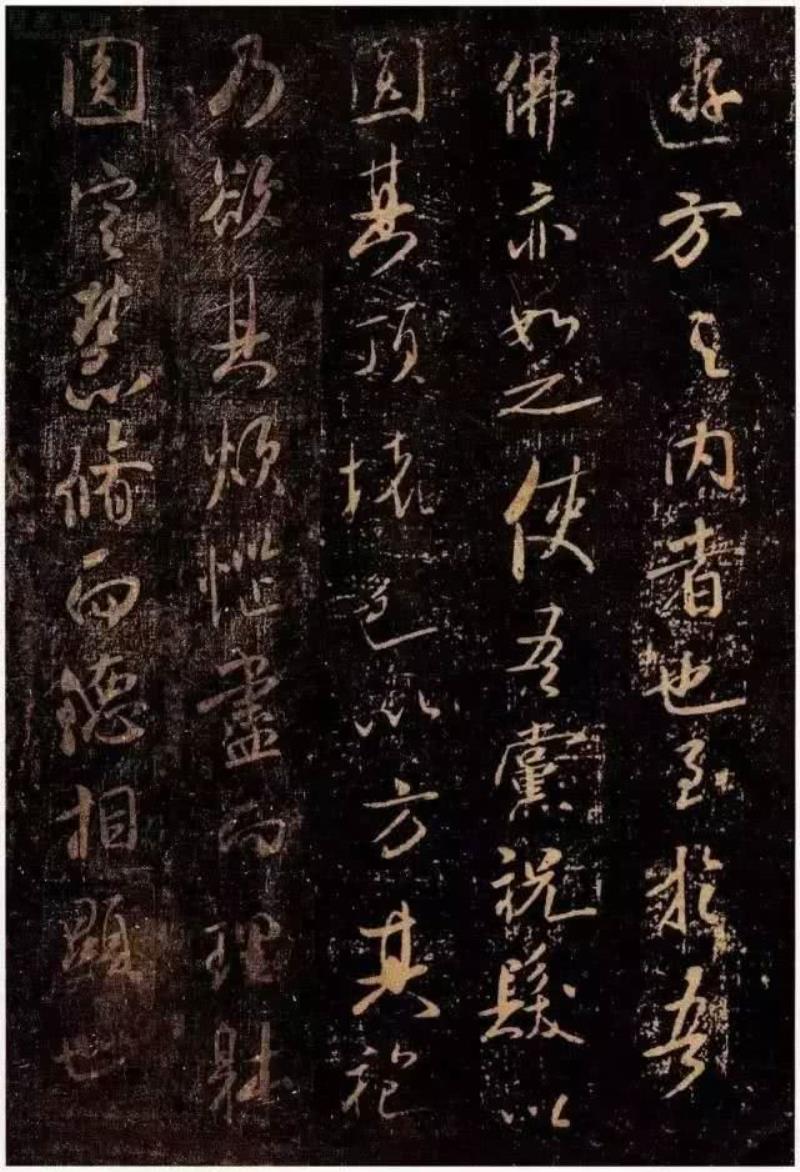 遊方之内者也至於吾
佛亦如之使吾黨祝髮以
圓其頂壞色以方其袍
乃欲其煩惱盡而理體
圓定慧脩而德相顯也